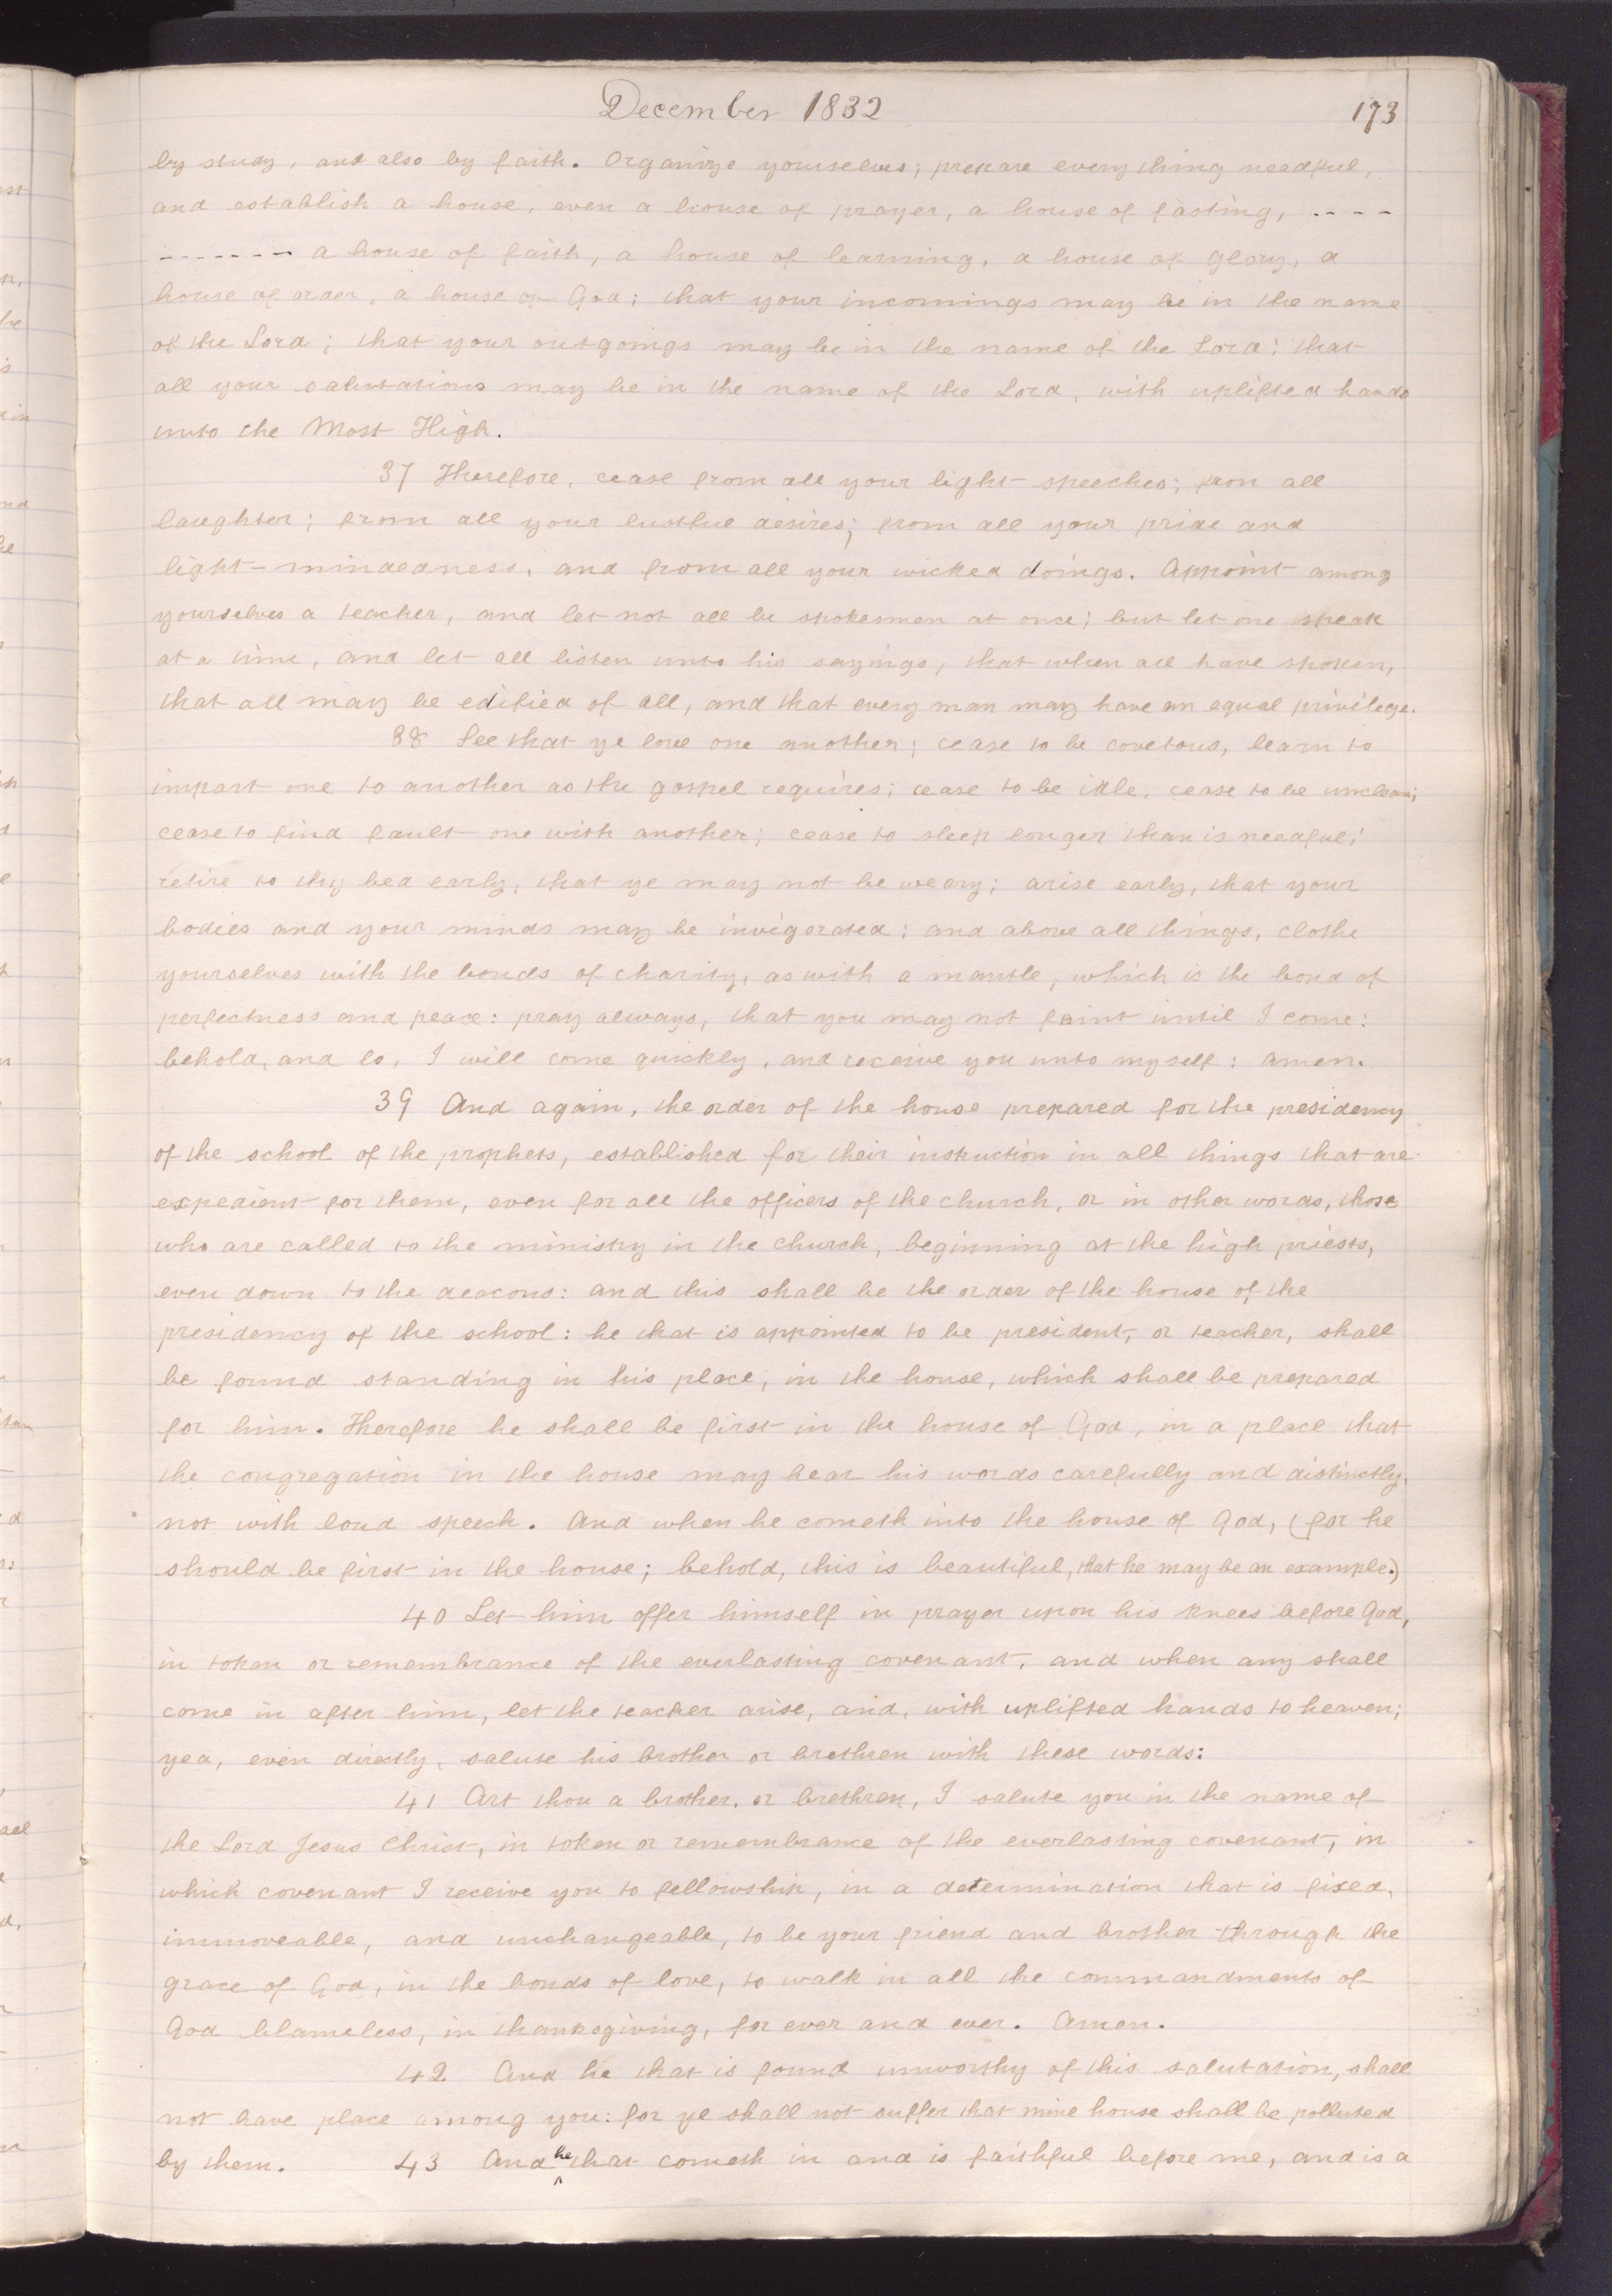 December 1832
173
by study, and also by faith. Organize yourselves; prepare every thing needful,
and establish a house, even a house of prayer, a house of fasting, ----
------- a house of faith, a house of learning, a house of glory, a
house of order, a house of God; that your incomings may be in the name
of the Lord; that your outgoings may be in the name of the Lord; that
all your salutations may be in the name of the Lord, with uplifted hands
unto the Most High.
37 Therefore, cease from all your light speeches; from all
laughter; from all your lustful desires; from all your pride and
light-mindedness, and from all your wicked doings. Appoint among
yourselves a teacher, and let not all be spokesmen at once; but let one speak
at a time, and let all listen unto his sayings, that when all have spoken,
that all may be edified of all, and that every man may have an equal privilege.
38 See that ye love one another; cease to be covetous, learn to
impart one to another as the gospel requires; cease to be idle, cease to be unclean;
cease to find fault one with another; cease to sleep longer than is needful;
retire to thy bed early, that ye may not be weary; arise early, that your
bodies and your minds may be invigorated; and above all things, clothe
yourselves with the bonds of charity, as with a mantle, which is the bond of
perfectness and peace: pray always, that you may not faint until I come:
behold, and lo, I will come quickly, and receive you unto myself: amen.
39 And again, the order of the house prepared for the presidency
of the school of the prophets, established for their instruction in all things that are
expedient for them, even for all the officers of the church, or in other words, those
who are called to the ministry in the church, beginning at the high priests,
even down to the deacons: and this shall be the order of the house of the
presidency of the school: he that is appointed to be president, or teacher, shall
be found standing in his place, in the house, which shall be prepared
for him. Therefore he shall be first in the house of God, in a place that
the congregation in the house may hear his words carefully and distinctly,
not with loud speech. And when he cometh into the house of God, (for he
should be first in the house; behold, this is beautiful, that he may be an example.)
40 Let him offer himself in prayer upon his knees before God,
in token or remembrance of the everlasting covenant, and when any shall
come in after him, let the teacher arise, and, with uplifted hands to heaven;
yea, even directly, salute his brother or brethren with these words:
41 Art thou a brother, or brethren, I salute you in the name of
the Lord Jesus Christ, in token or remembrance of the everlasting covenant, in
which covenant I receive you to fellowship, in a determination that is fixed,
immoveable, and unchangeable, to be your friend and brother through the
grace of God, in the bonds of love, to walk in all the commandments of
God blameless, in thanksgiving, for ever and ever. Amen.
42 And he that is found unworthy of this salutation, shall
not have place among you: for ye shall not suffer that mine house shall be polluted
by them. 43 And he that cometh in and is faithful before me, and is a